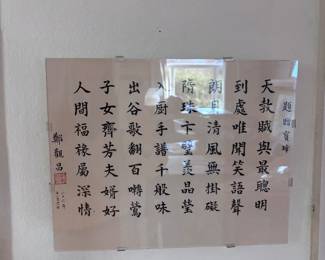 題贈寶珠
天教賦與最聰明
到處唯聞笑語聲
朗月清風無掛礙
隋珠卞璧羨晶瑩
入厨手譜千般味
出谷歌翻百囀鶯
子女齊芳夫婿好
人間福祿屬深情
鄭觀昌